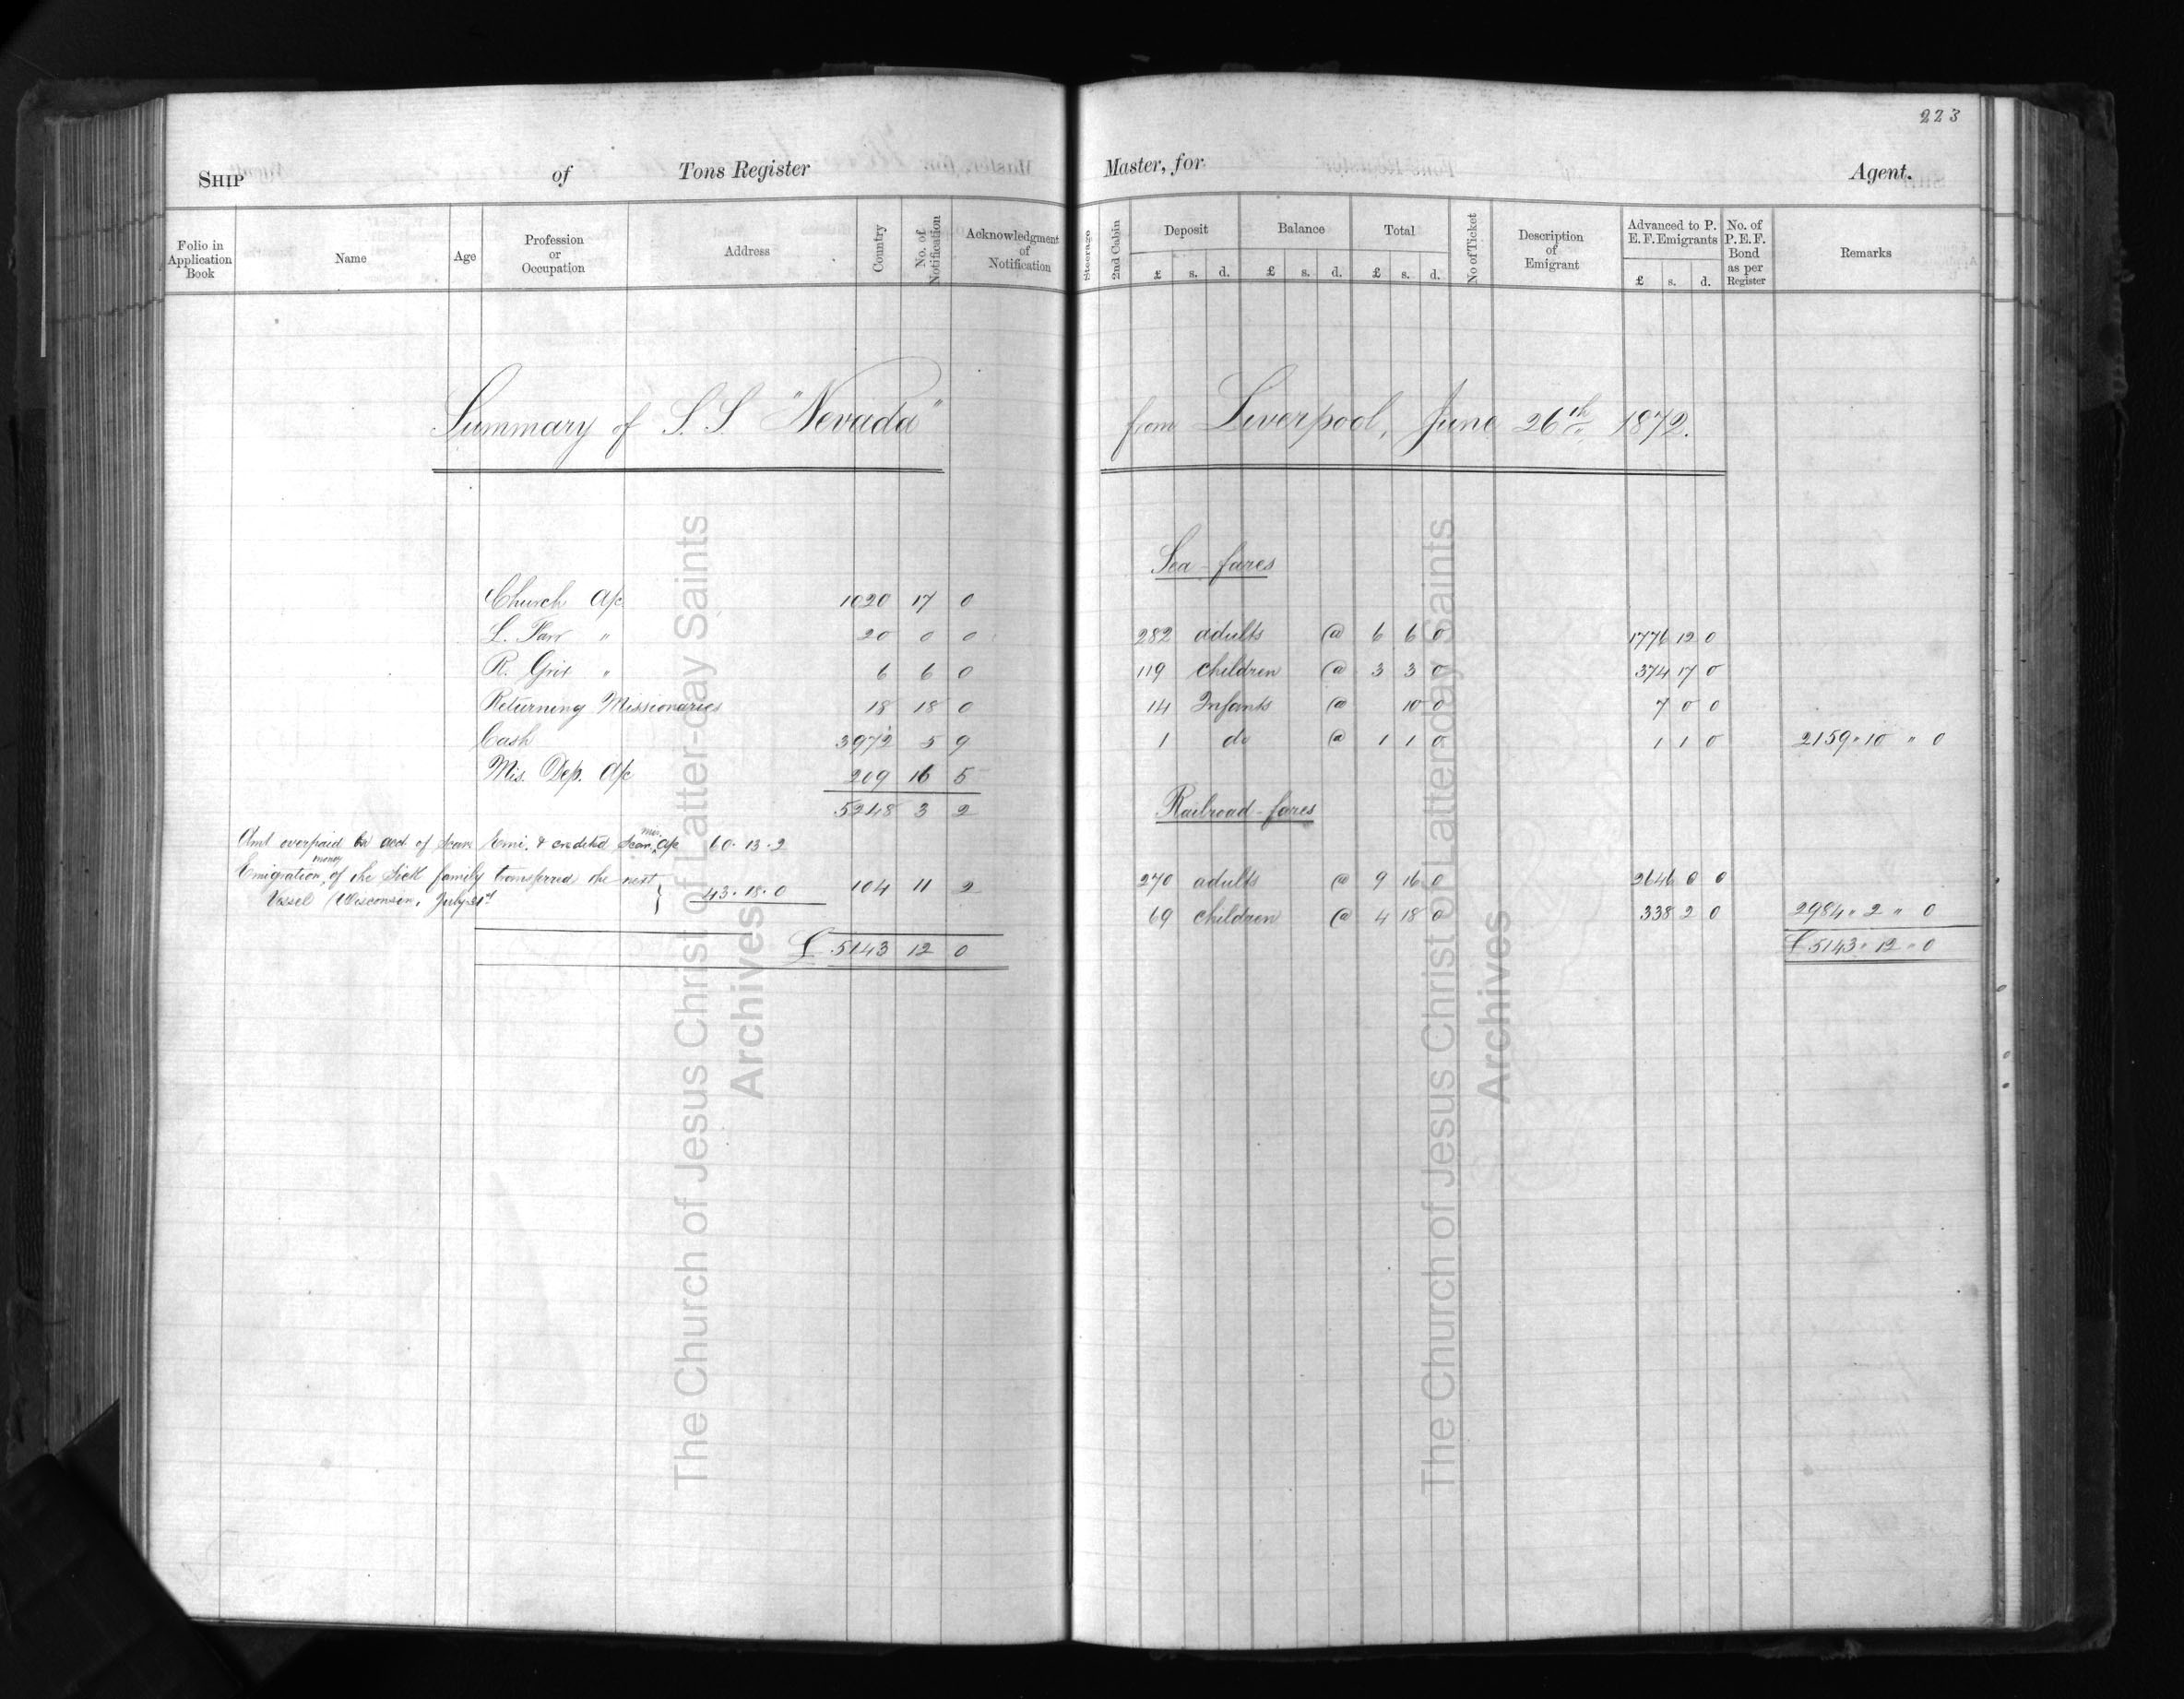 223
SHIP of Tons Register Master, for Agent.
Folio in Application Book
Name
Age
Profession or Occupation
Address
Country
No. of Notification
Acknowledgment of Notification
Steerage
2nd Cabin
Deposit £ s. d.
Balance £ s. d.
Total £ s. d.
No of Ticket
Description of Emigrant
Advanced to P. E. F. Emigrants £ s. d.
No. of P. E. F. Bond as per Register
Remarks
Summary of S. S. "Nevada" from Liverpool, June 26th 1872.
Church a/c 1020 17 0
L. Farr " 20 0 0
R. " 6 6 0
Returning Missionaries 18 18 0
Cash 3972 5 9
Mis. Dep. a/c 209 16 5
5248 3 2
Amt overpaid on acct of Scan Emi. & credited Scan. mis. a/c 60. 13. 2
Emigration money of the family transferred the next
Vessel (Wisconsin, July 31st } 43. 18. 0 104 11 2
£ 5143 12 0
Sea-fares
282 adults @ 6 6 0 1776 12 0
119 children @ 3 3 0 374 17 0
14 Infants @ 10 0 7 0 0
1 do @ 1 1 0 1 1 0 2159 " 10 " 0
Railroad-fares
270 adults @ 9 16 0 2646 0 0
69 children @ 4 18 0 338 2 0 2984 " 2 " 0
£ 5143 " 12 " 0
The Church of Jesus Christ of Latter-day Saints
Archives
The Church of Jesus Christ of Latter-day Saints
Archives